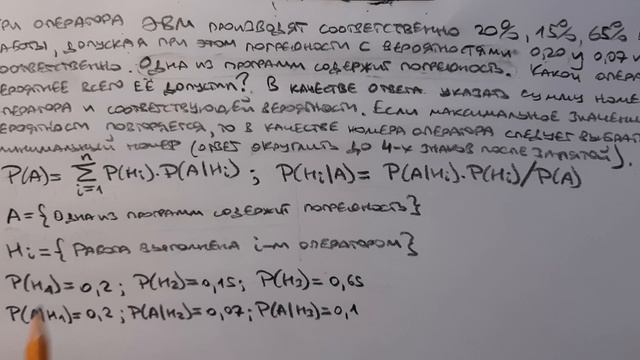 РИ ОПЕРАТОРА ЭВМ ПРОИЗВОДЯТ СООТВЕТСТВЕННО 20%, 15%, 65%
АБОТЫ, ДОПУСКАЯ ПРИ ЭТОМ ПОГРЕШНОСТИ С ВЕРОЯТНОСТЯМИ 0,20 У 0,07 И
ООТВЕТСТВЕННО. ОДНА ИЗ ПРОГРАММ СОДЕРЖИТ ПОГРЕШНОСТЬ. КАКОЙ ОПЕРА
ЕРОЯТНЕЕ ВСЕГО ЕЁ ДОПУСТИЛ? В КАЧЕСТВЕ ОТВЕТА УКАЗАТЬ СУММУ НОМЕ
ПЕРАТОРА И СООТВЕТСТВУЮЩЕЙ ВЕРОЯТНОСТИ. ЕСЛИ МАКСИМАЛЬНОЕ ЗНАЧЕНИ
ЕРОЯТНОСТИ ПОВТОРЯЕТСЯ, ТО В КАЧЕСТВЕ НОМЕРА ОПЕРАТОРА СЛЕДУЕТ ВЫБРАТ
ИНИМАЛЬНЫЙ НОМЕР (ОТВЕТ ОКРУГЛИТЬ ДО 4-Х ЗНАКОВ ПОСЛЕ ЗАПЯТОЙ).
P(A) = n∑i=1 P(Hi)·P(A|Hi) ; P(Hi|A) = P(A|Hi)·P(Hi)/P(A)
A={ОДНА ИЗ ПРОГРАММ СОДЕРЖИТ ПОГРЕШНОСТЬ}
Hi={РАБОТА ВЫПОЛНЕНА i-М ОПЕРАТОРОМ}
P(H1)=0,2; P(H2)=0,15; P(H3)=0,65
P(A|H1)=0,2; P(A|H2)=0,07; P(A|H3)=0,1